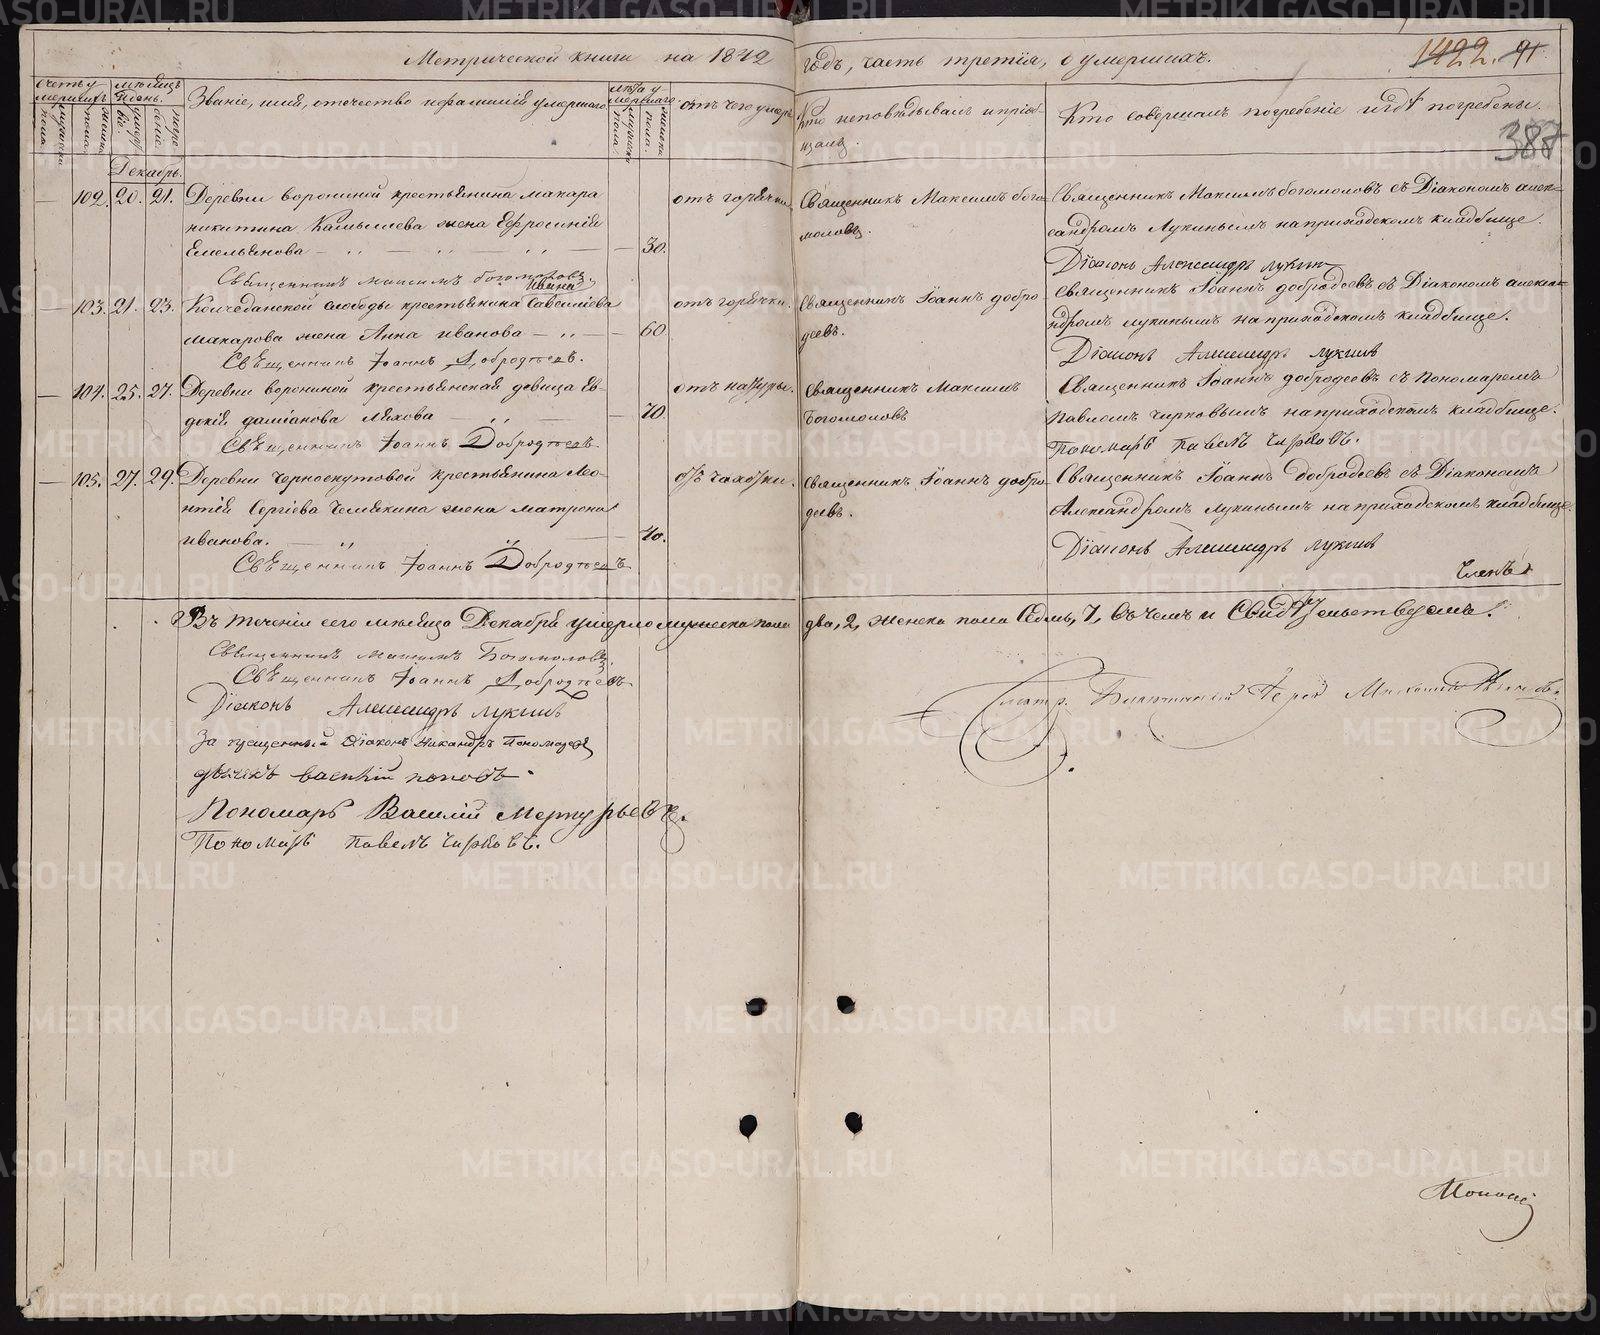 Метрической книги на 1842 годъ, часть третія, о умершихъ.
1422. 91
387
Счетъ умершихъ
Мѣсяцъ и день.
Званіе, имя, отечество и фамилія умершаго.
Лѣта умершаго
отъ чего умеръ
Кто исповѣдывалъ и пріобщалъ.
Кто совершалъ погребеніе и гдѣ погребены.
мужеска пола.
женска пола.
Декабрь.
— 102. 20. 21. Деревни Ворониной крестьянина Макара
Никитина Камышева жена Ефросинія
Емельянова — 30.
отъ горячки
Священникъ Максимъ Бого-
моловъ.
Священникъ Максимъ Богомоловъ съ Діакономъ Алек-
сандромъ Лукинымъ на приходскомъ кладбище.
Діаконъ Александръ Лукинъ
Священникъ Максимъ Богомоловъ.
— 103. 21. 23. Колчеданской слободы крестьянина Савелиева
Макарова жена Анна Иванова — 60
отъ горячки.
Священникъ Іоаннъ Добро-
деевъ.
Священникъ Іоаннъ Добродеевъ съ Діакономъ Алекса-
ндромъ Лукинымъ на приходскомъ кладбище.
Діаконъ Александръ Лукинъ
Священникъ Іоаннъ Добродѣевъ.
— 104. 25. 27. Деревни Ворониной крестьянская девица Ев-
докія Даміанова Ляхова — 70
отъ натуры.
Священникъ Максимъ
Богомоловъ
Священникъ Іоаннъ Добродеевъ съ Пономаремъ
Павломъ Чирковымъ на приходскомъ кладбище.
Пономарь Павелъ Чирковъ.
Священникъ Іоаннъ Добродѣевъ.
— 105. 27. 29. Деревни Черноскутовой крестьянина Лео-
нтія Сергіева Чемякина жена Матрона
Иванова. — 40.
отъ чахотки.
Священникъ Іоаннъ Добро-
деевъ.
Священникъ Іоаннъ Добродеевъ съ Діакономъ
Александромъ Лукинымъ на приходскомъ кладбище.
Діаконъ Александръ Лукинъ
Священникъ Іоаннъ Добродѣевъ
Членъ
Въ теченіи сего мѣсяца Декабря умерло мужеска пола два, 2, женска пола Седмь, 7, въ чемъ и Свидѣтельствуемъ.
Священникъ Максимъ Богомоловъ
Священникъ Іоаннъ Добродѣевъ
Діаконъ Александръ Лукинъ
Запрещенный Діаконъ Никандръ Пономаревъ
Дьячекъ Василій Поповъ.
Пономарь Василій Меркурьевъ.
Пономарь Павелъ Чирковъ.
METRIKI.GASO-URAL.RU